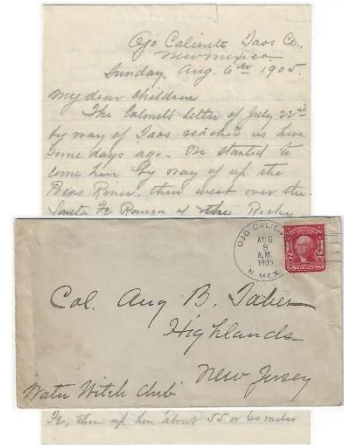 Ojo Caliente Taos Co.,
New Mexico.
Sunday, Aug. 6th 1905.
My dear children
The Colonel's letter of July 22nd
by way of Taos reached us here
some days ago. We started to
come here by way of up the
Pecos River, then went over the
Santa Fe Range of the
OJO CALIEN
AUG
8
A.M.
1905
N. MEX.
Col. Aug B.
Highlands
New Jersey
Water Witch Club
Fe, then up here about 55 or 60 miles